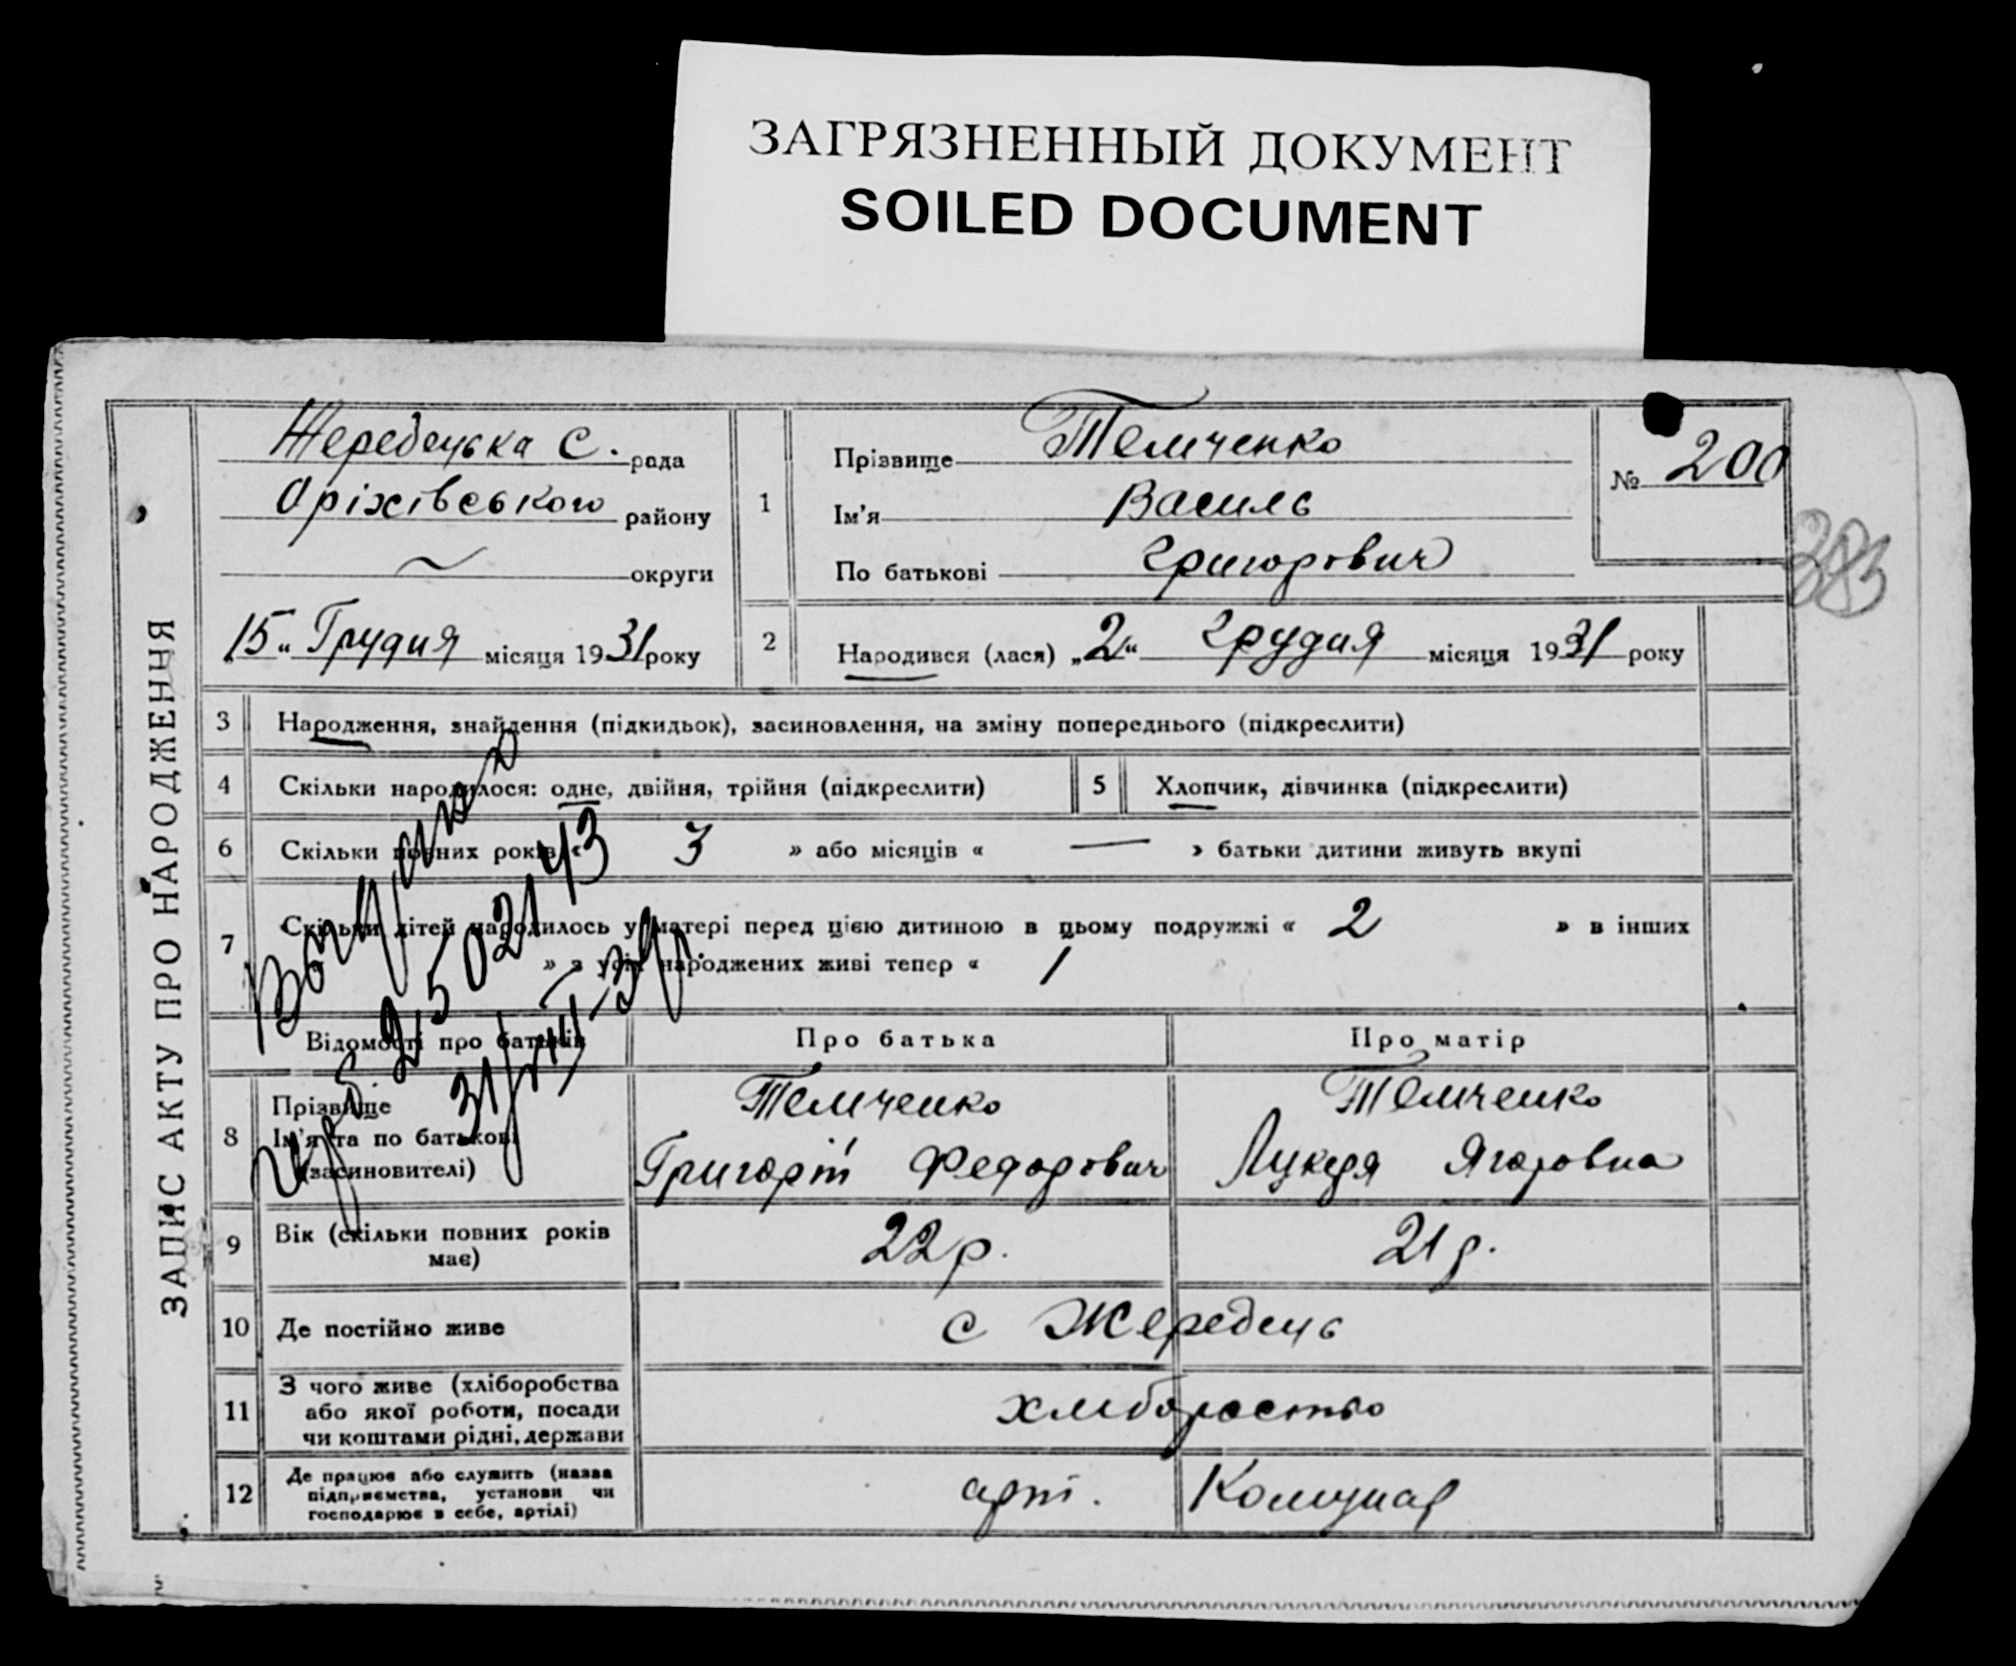 ЗАГРЯЗНЕННЫЙ ДОКУМЕНТ
SOILED DOCUMENT
ЗАПИС АКТУ ПРО НАРОДЖЕННЯ
Жередецька С. рада
Оріхівського району
округи
15 „ Грудня місяця 1931 року
1
Прізвище Темченко
Ім'я Василь
По батькові Григорович
№ 200
2 Народився (лася) „2“ Грудня місяця 1931 року
3 Народження, знайдення (підкидьок), засиновлення, на зміну попереднього (підкреслити)
4 Скільки народилося: одне, двійня, трійня (підкреслити) 5 Хлопчик, дівчинка (підкреслити)
6 Скільки повних років « 3 » або місяців « — » батьки дитини живуть вкупі
7 Скільки дітей народилось у матері перед цією дитиною в цьому подружжі « 2 » в інших
» з усіх народжених живі тепер « 1
Відомості про батьків Про батька Про матір
8 Прізвище Темченко Темченко
Ім'я та по батькові Григорій Федорович Лукеря Ягоровна
(засиновителі)
9 Вік (скільки повних років має) 22 р. 21 р.
10 Де постійно живе с Жередець
11 З чого живе (хліборобства
або якої роботи, посади
чи коштами рідні, держави хлибороство
12 Де працює або служить (назва
підприємства, установи чи
господарює в себе, артілі) арт. Комунар
502143